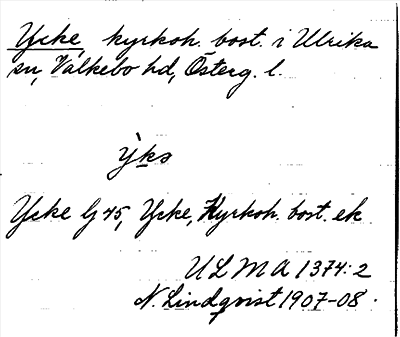 Ycke, kyrkoh. bost. i Ulrika
sn, Valkebo hd, Österg. l.
Y̍ks
Ycke G 45, Ycke, Kyrkoh. bost. ek
ULMA 1374:2
N. Lindqvist 1907-08.